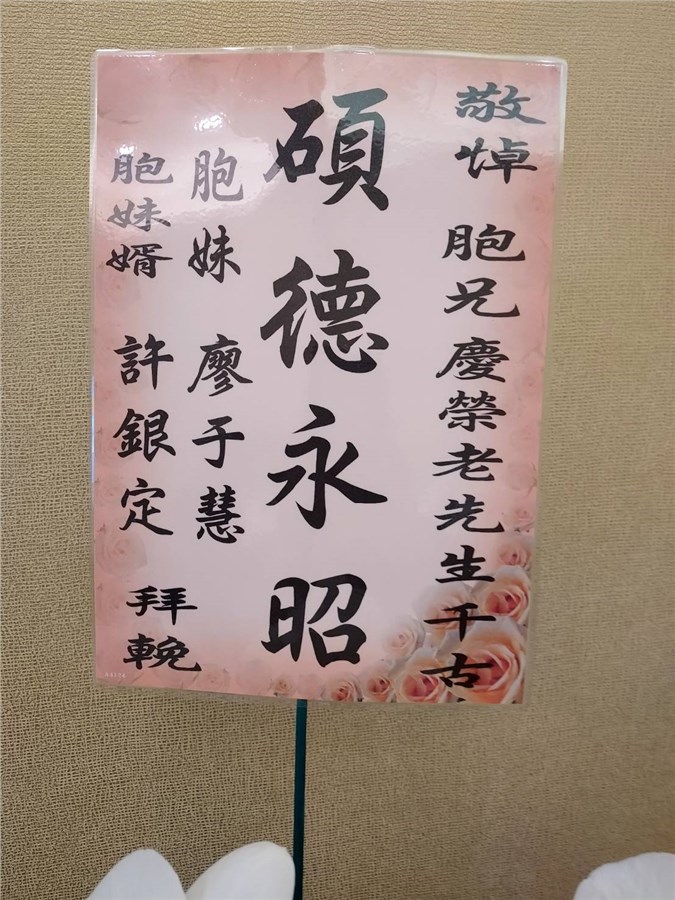 敬悼 胞兄慶榮老先生千古
碩德永昭
胞妹 廖于慧
胞妹婿 許銀定
拜輓